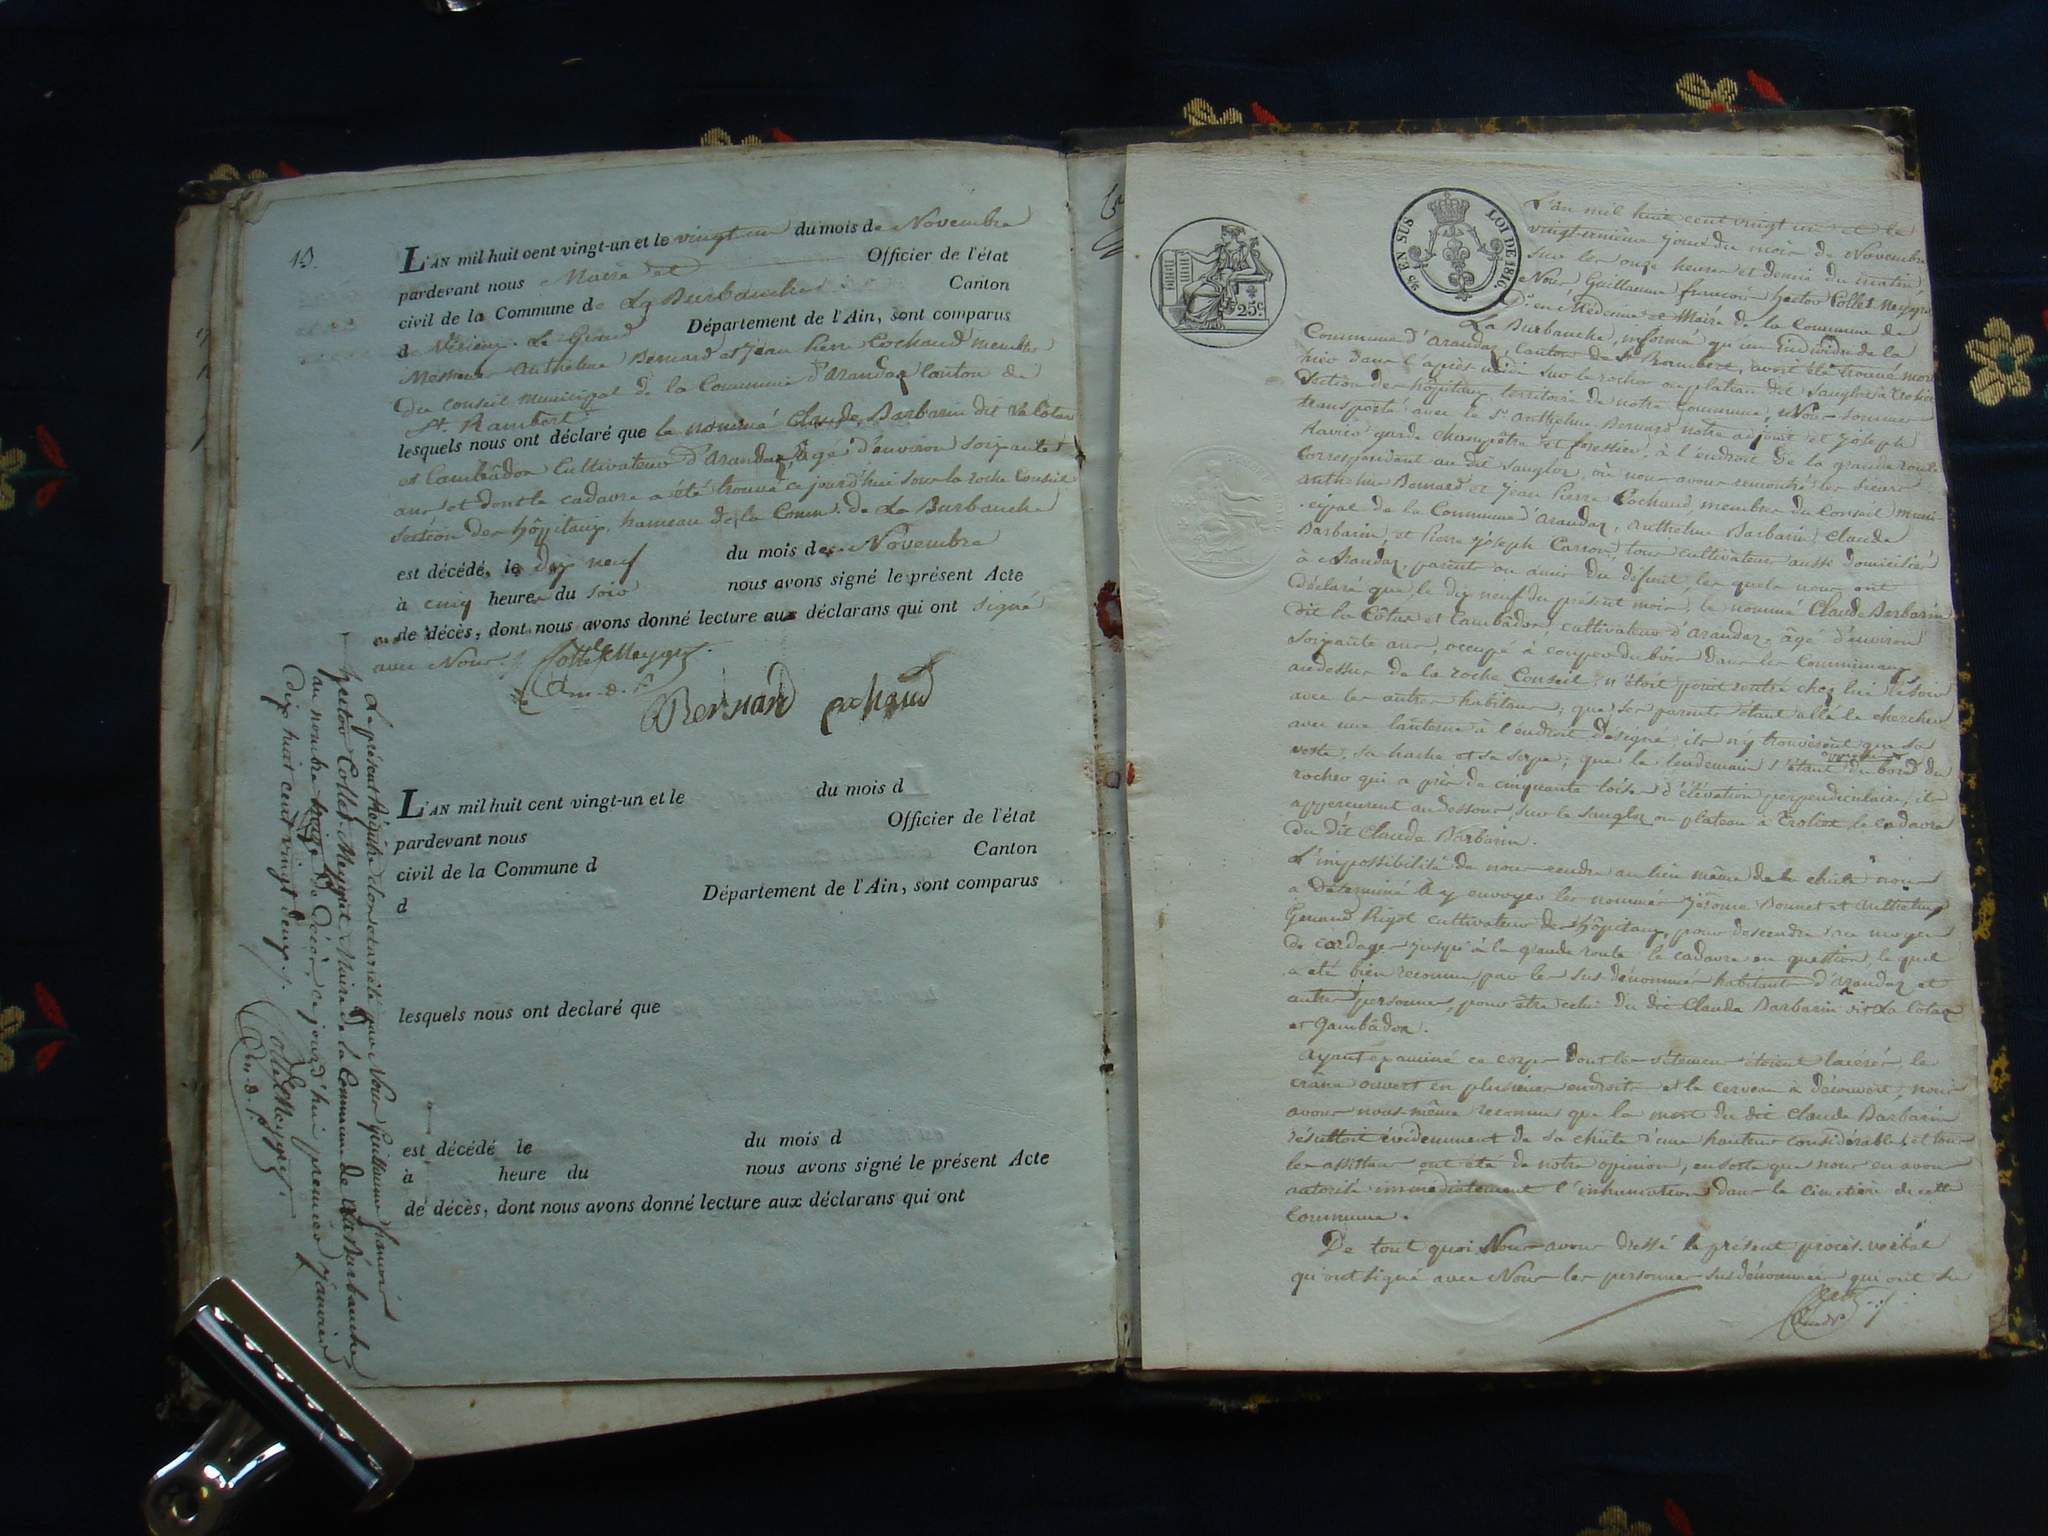 13.
L'AN mil huit cent vingt-un et le vingt un du mois de Novembre
pardevant nous Maire et Officier de l'état
civil de la Commune de La Burbanche Canton
de Virieu-Le Grand Département de l'Ain, sont comparus
Messieurs Anthelme Bernard et Jean Pierre Cochaud membres
du Conseil municipal de la Commune d'Arandaz Canton de
St. Rambert
lesquels nous ont déclaré que le nommé Claude Barbarin dit la Côtaz
et Cambâdoz Cultivateur d'Arandaz, âgé d'environ soixante
ans et dont le cadavre a été trouvé ce jourd'hui sous la roche Conseil
section des hôpitaux, hameau de la Comm. de La Burbanche
est décédé, le dix neuf du mois de Novembre
à cinq heures du soir nous avons signé le présent Acte
de décès, dont nous avons donné lecture aux déclarans qui ont signé
avec Nous.
Collet Meygret
D.m.
Bernard cochaud
L'AN mil huit cent vingt-un et le du mois d
pardevant nous Officier de l'état
civil de la Commune d Canton
d Département de l'Ain, sont comparus
lesquels nous ont declaré que
est décédé le du mois d
à heure du nous avons signé le présent Acte
de décès, dont nous avons donné lecture aux déclarans qui ont
Le présent Régistre clos et arrêté par Nous Guillaume françois
hector Collet-Meygret, Maire de la Commune de La Burbanche,
au nombre de treize de Décès, ce jourd'hui premier Janvier
dix huit cent vingt deux.
Collet Meygret
D.m.
25c
25 EN SUS LOI DE 1816.
L'an mil huit cent vingt un et le
vingt unième jour du mois de Novembre
sur les onze heures et demie du matin
Nous Guillaume françois hector Collet Meygret
Dr. en Médecine et Maire de la Commune de
La Burbanche, informé qu'un individu de la
Commune d'Arandaz, Canton de St Rambert, avoit été trouvé mort
hier dans l'après midi sur le rocher ou plateau dit Sangloz à Crotiex
section des hôpitaux territoire de notre Commune, Nous sommes
transporté avec le Sr. Anthelme Bernard notre adjoint et Joseph
garde champêtre et forestier, à l'endroit de la grande route
correspondant au dit Sangloz, où nous avons rencontré les Sieurs
anthelme Bernard et Jean Pierre Cochaud, membres du Conseil muni-
-cipal de la Commune d'Arandaz, Anthelme Barbarin, Claude
Barbarin et Pierre Joseph Carron, tous cultivateurs aussi domiciliés
à Arandaz, parents ou amis du défunt, les quels nous ont
Déclaré que le dix neuf du présent mois, le nommé Claude Barbarin
dit la Côtaz et Cambâdoz, cultivateur d'Arandaz, âgé d'environ
soixante ans, occupé à couper du bois dans les Communaux
audessus de la roche Conseil, n'étoit point rentré chez lui le soir
avec les autres habitans; que ses parents étant allé le chercher
avec une lanterne à l'endroit désigné, ils n'y trouvèrent que sa
veste, sa hache et sa serpe; que le lendemain s'étant approchés du bord du
rocher qui a près de cinquante toises d'élévation perpendiculaire, ils
apperçurent au dessous, sur le sangloz ou plateau à Crotiex, le cadavre
du dit Claude Barbarin.
L'impossibilité de nous rendre au lieu même de la chûte nous
a déterminé d'y envoyer les nommés Jérome Bonnet et Anthelme
Genand Rigot cultivateur des hôpitaux, pour descendre au moyen
de cordages jusqu'à la grande route le cadavre en question, le quel
a été bien reconnu par les sus dénommés habitants d'Arandaz et
autres personnes, pour être celui du dit Claude Barbarin dit La Côtaz
et Gambâdoz.
Ayant éxaminé ce corps dont les vêtemens étoient lacérés, le
crâne ouvert en plusieurs endroits et la cerveau à découvert, nous
avons nous-même reconnu que la mort du dit Claude Barbarin
résultoit évidemment de sa chûte d'une hauteur considérable, et tous
les assistans ont été de notre opinion, ensorte que nous en avons
autorisé immédiatement l'inhumation dans le cimetière de cette
Commune.
De tout quoi Nous avons dressé le présent procès-verbal
qu'ont signé avec Nous les personnes susdénommées qui ont su